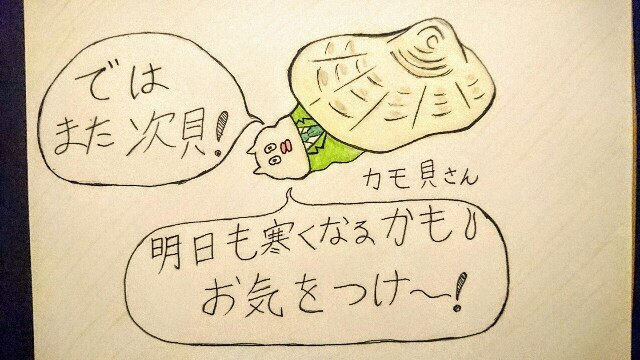 では
また次貝!
カモ貝さん
明日も寒くなるかも
お気をつけ〜!